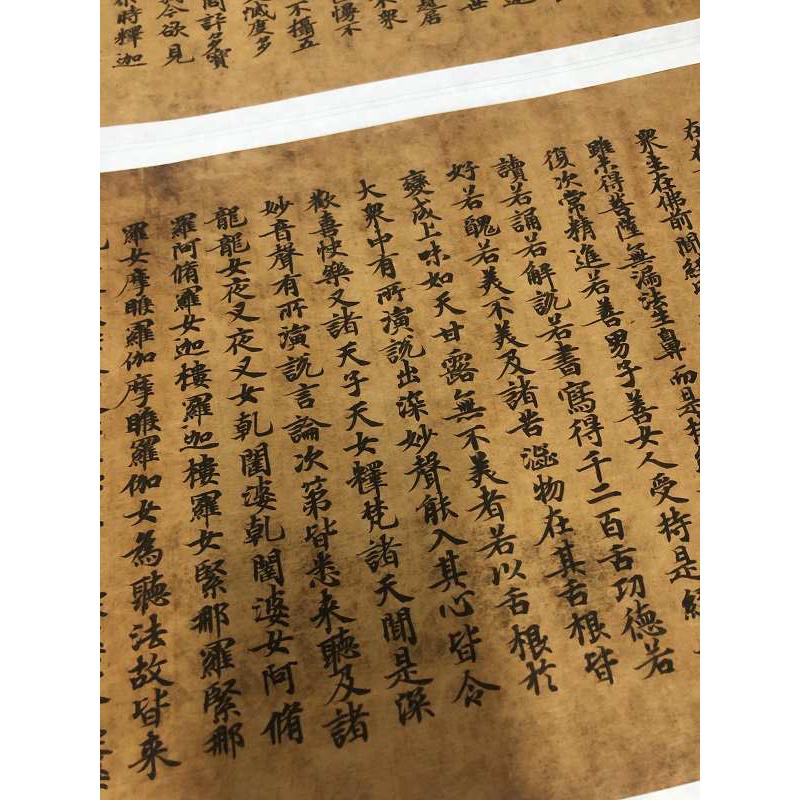 世
居
衆
慢不
不攝五
滅度多
問許多寶
今欲見
時釋迦
衆生在佛前聞經
雖未得菩薩無漏法生鼻而是持
復次常精進若善男子善女人受持是經
讀若誦若解説若書寫得千二百舌功德若
好若醜若美不美及諸苦澁物在其舌根皆
變成上味如天甘露無不美者若以舌根於
大衆中有所演説出深妙聲能入其心皆令
歡喜快樂又諸天子天女釋梵諸天聞是深
妙音聲有所演説言論次第皆悉来聽及諸
龍龍女夜叉夜叉女乹闥婆乹闥婆女阿脩
羅阿脩羅女迦樓羅迦樓羅女緊那羅緊那
羅女摩睺羅伽摩睺羅伽女為聽法故皆来